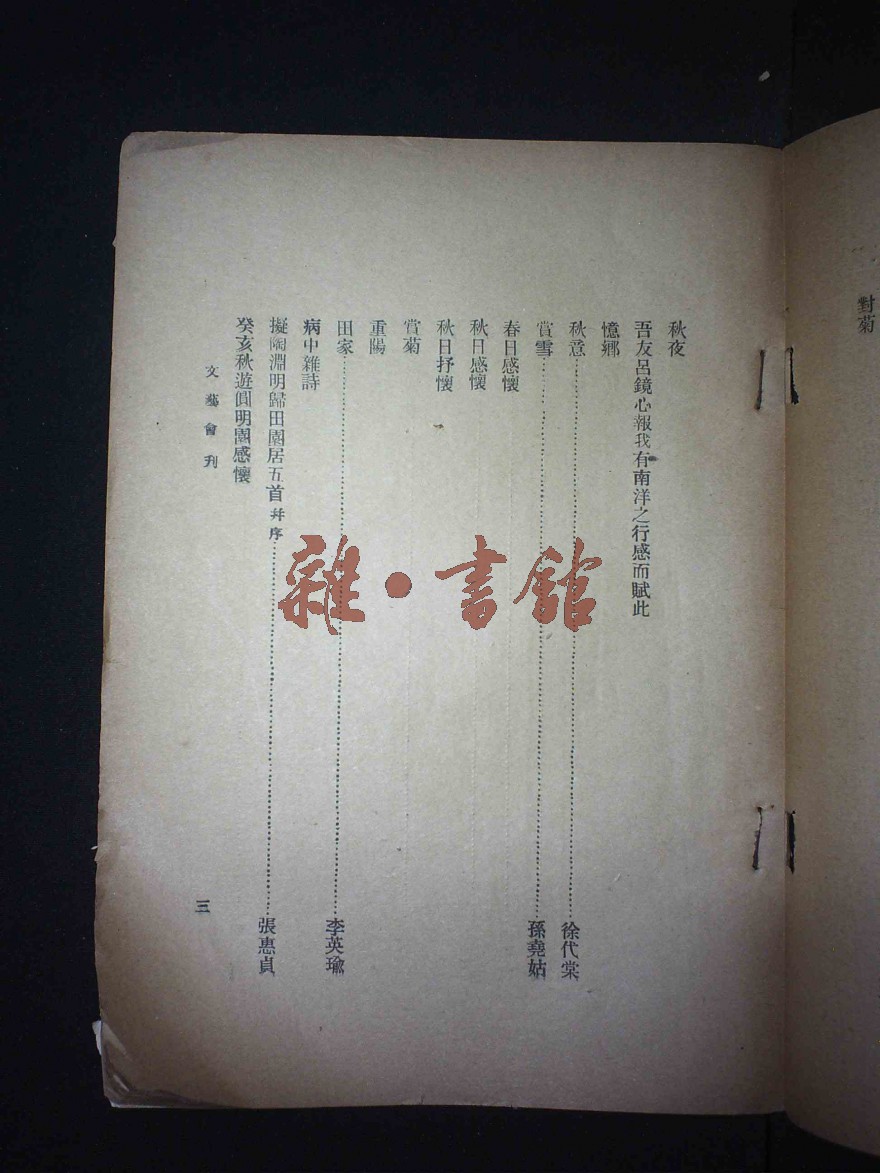 對菊
秋夜
吾友呂鏡心報我有南洋之行感而賦此
憶鄉
秋意……徐代棠
賞雪……孫堯姑
春日感懷
秋日感懷
秋日抒懷
賞菊
重陽
田家……李英瑜
病中雜詩
擬陶淵明歸田園居五首并序……張惠貞
癸亥秋遊圓明園感懷
文藝會刊
三
雜·書館